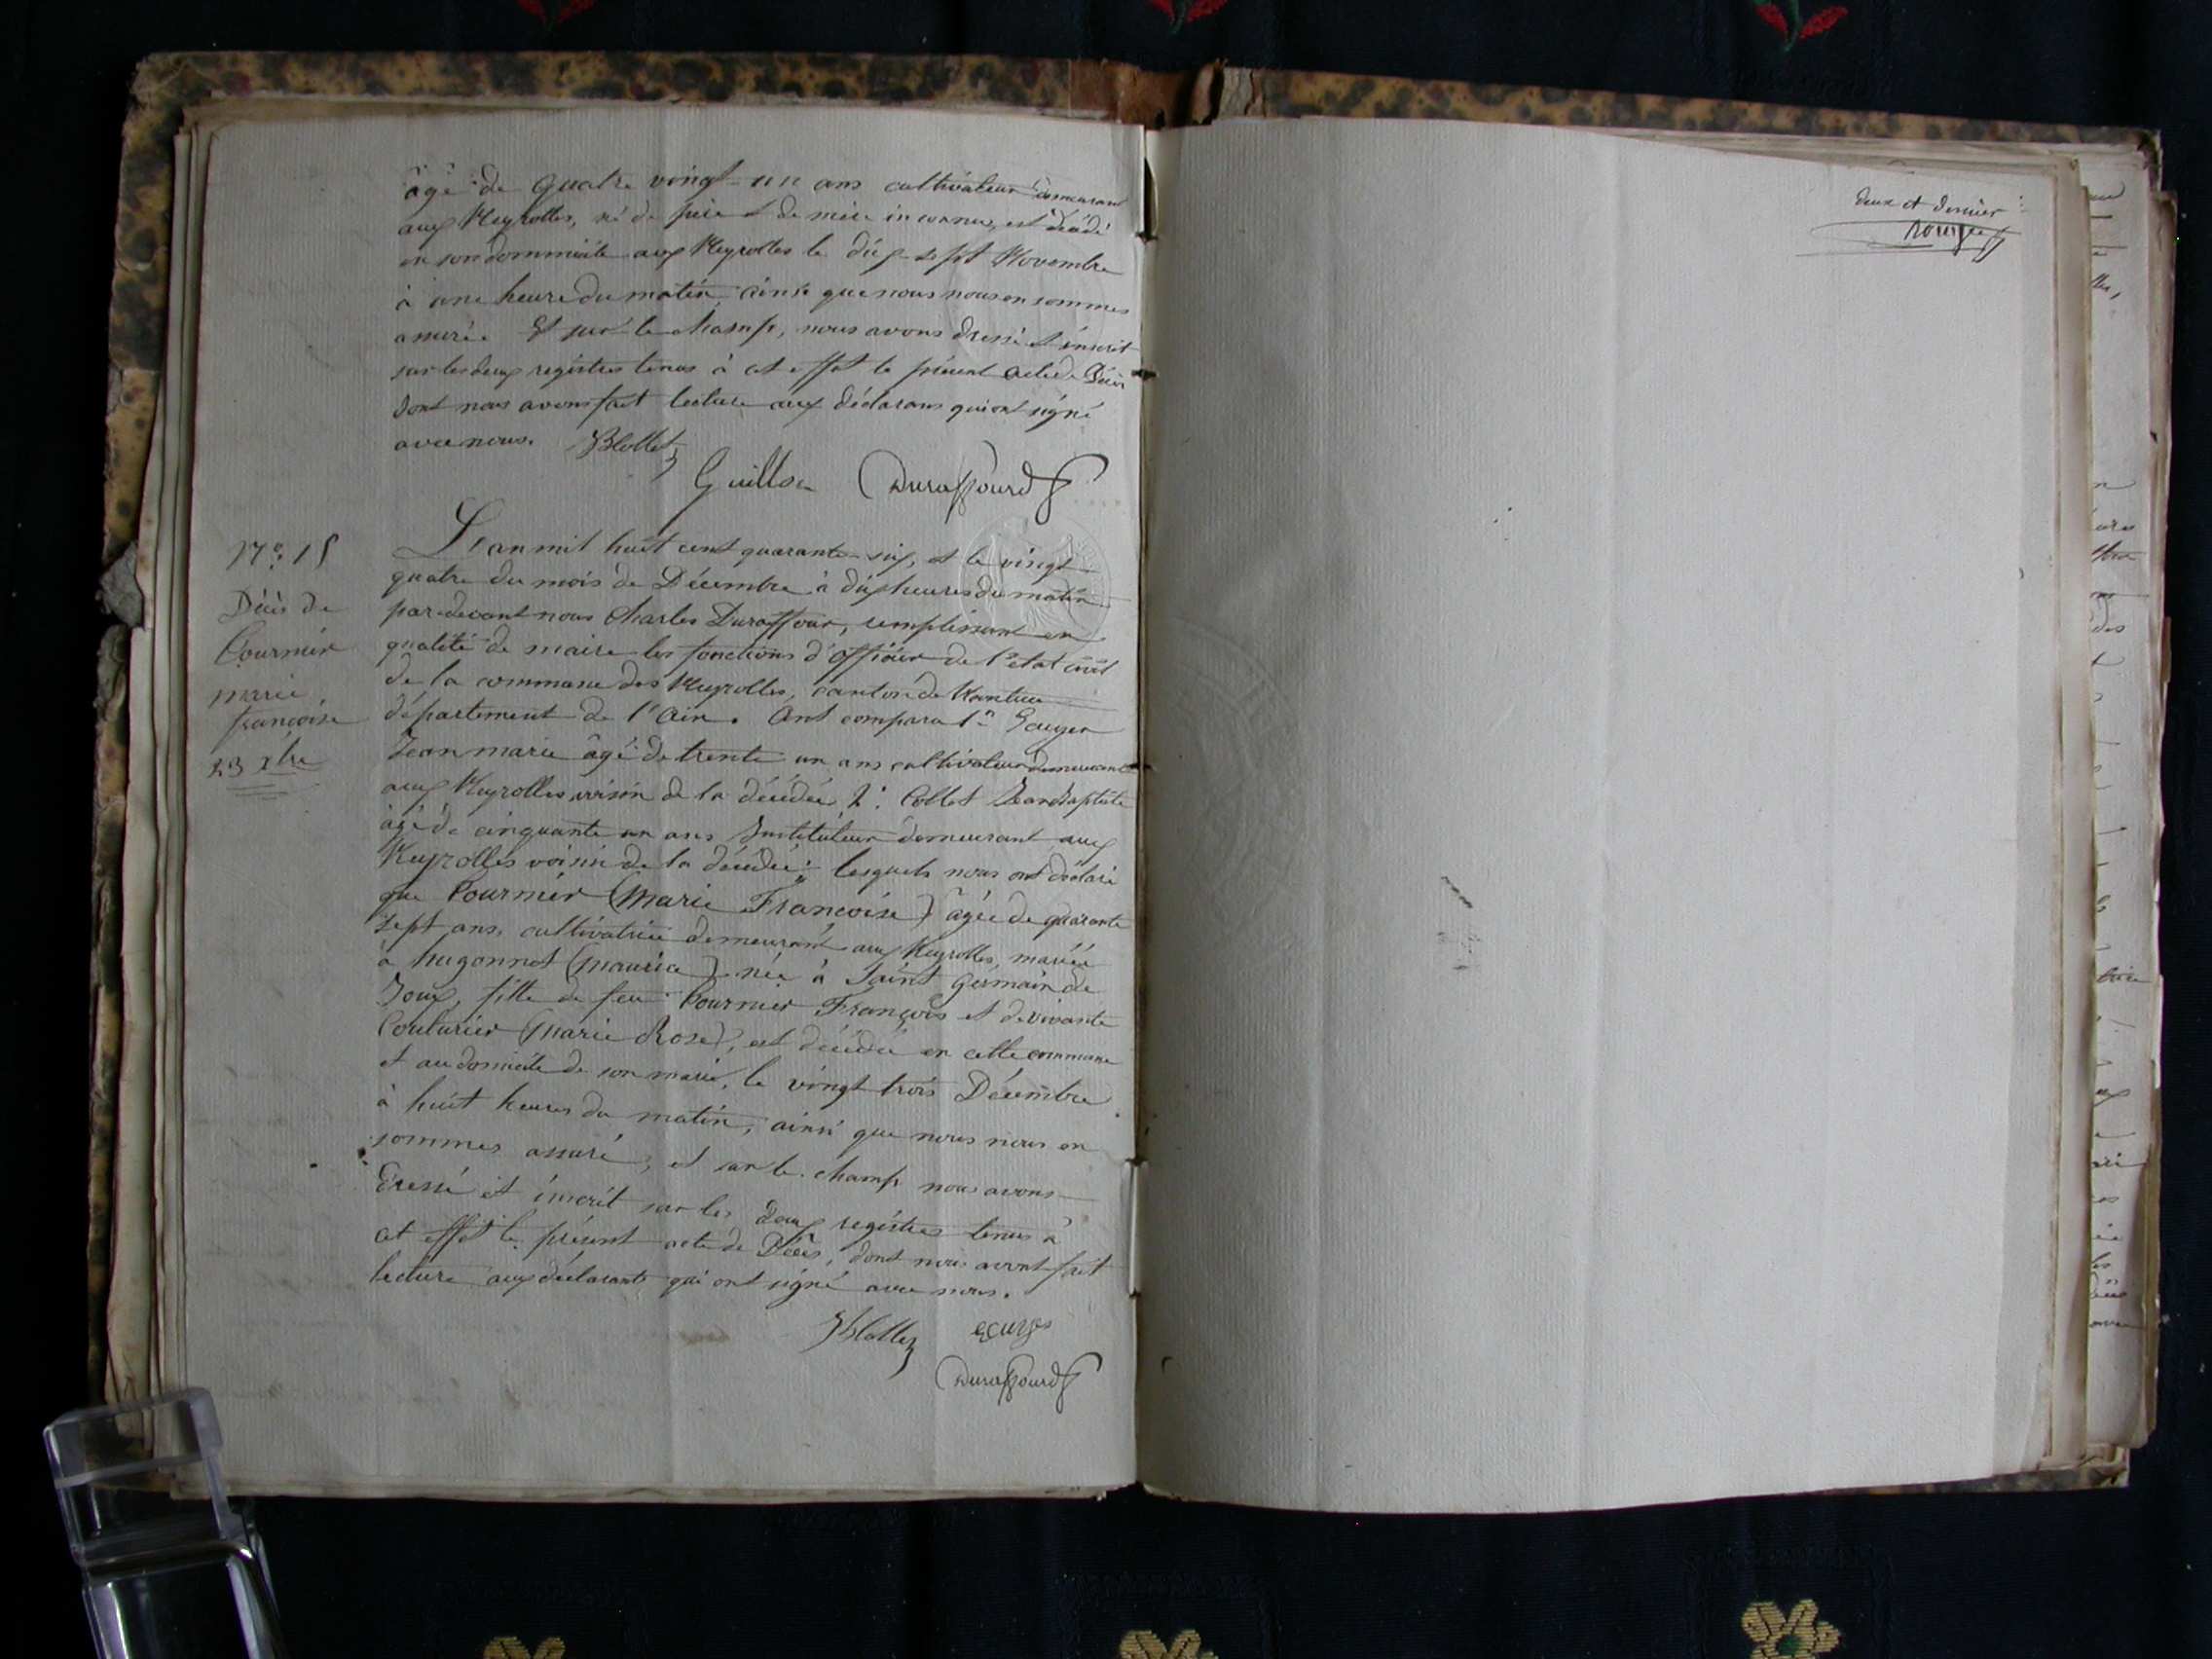 âgé de quatre vingt-un ans cultivateur demeurant
aux Neyrolles, né de père et de mère inconnus, est décédé
en son dommicile aux Neyrolles le dix-sept Novembre
à une heure du matin, ainsi que nous nous en sommes
assuré. Et sur le champ, nous avons dressé et inscrit
sur les deux registres tenus à cet effet le présent acte de Décès
dont nous avons fait lecture aux déclarans qui ont signé
avec nous. JBCollet
Guillon Duraffourd
N.º 15
Décès de
Cournier
marie
françoise
23 Xbre
L'an mil huit cent quarante-six, et le vingt
quatre du mois de Décembre à dix heures du matin
par-devant nous Charles Duraffour, remplissant en
qualité de maire les fonctions d'officier de l'état civil
de la commune des Neyrolles, canton de Nantua
département de l'Ain. Ont comparu 1º
Jean marie âgé de trente un ans cultivateur demeurant
aux Neyrolles, voisin de la décédée, 2º. Collet Jean Baptiste
âgé de cinquante un ans Instituteur demeurant aux
Neyrolles voisin de la décédée; lesquels nous ont déclaré
que Cournier (Marie Françoise) âgée de quarante
sept ans, cultivatrice demeurant aux Neyrolles, mariée
à hugonnet (maurice) née à Saint Germain de
Joux, fille de feu Cournier François et de vivante
Couturier (Marie Rose), est décédée en cette commune
et au domicile de son marié, le vingt trois Décembre
à huit heures du matin, ainsi que nous nous en
sommes assuré, et sur le champ nous avons
dressé et inscrit sur les deux registres tenus à
cet effet le présent acte de Décès, dont nous avons fait
lecture aux déclarants qui ont signé avec nous.
JBCollet
Duraffourd
deux et dernier